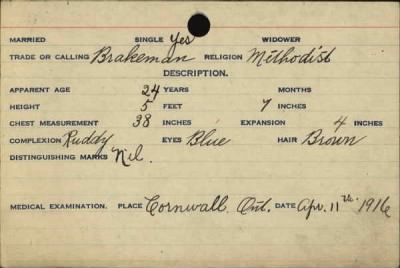 MARRIED SINGLE Yes WIDOWER
TRADE OR CALLING Brakeman RELIGION Methodist
DESCRIPTION.
APPARENT AGE 24 YEARS MONTHS
HEIGHT 5 FEET 7 INCHES
CHEST MEASUREMENT 38 INCHES EXPANSION 4 INCHES
COMPLEXION Ruddy EYES Blue HAIR Brown
DISTINGUISHING MARKS Nil.
MEDICAL EXAMINATION. PLACE Cornwall Ont. DATE Apr. 11th 1916